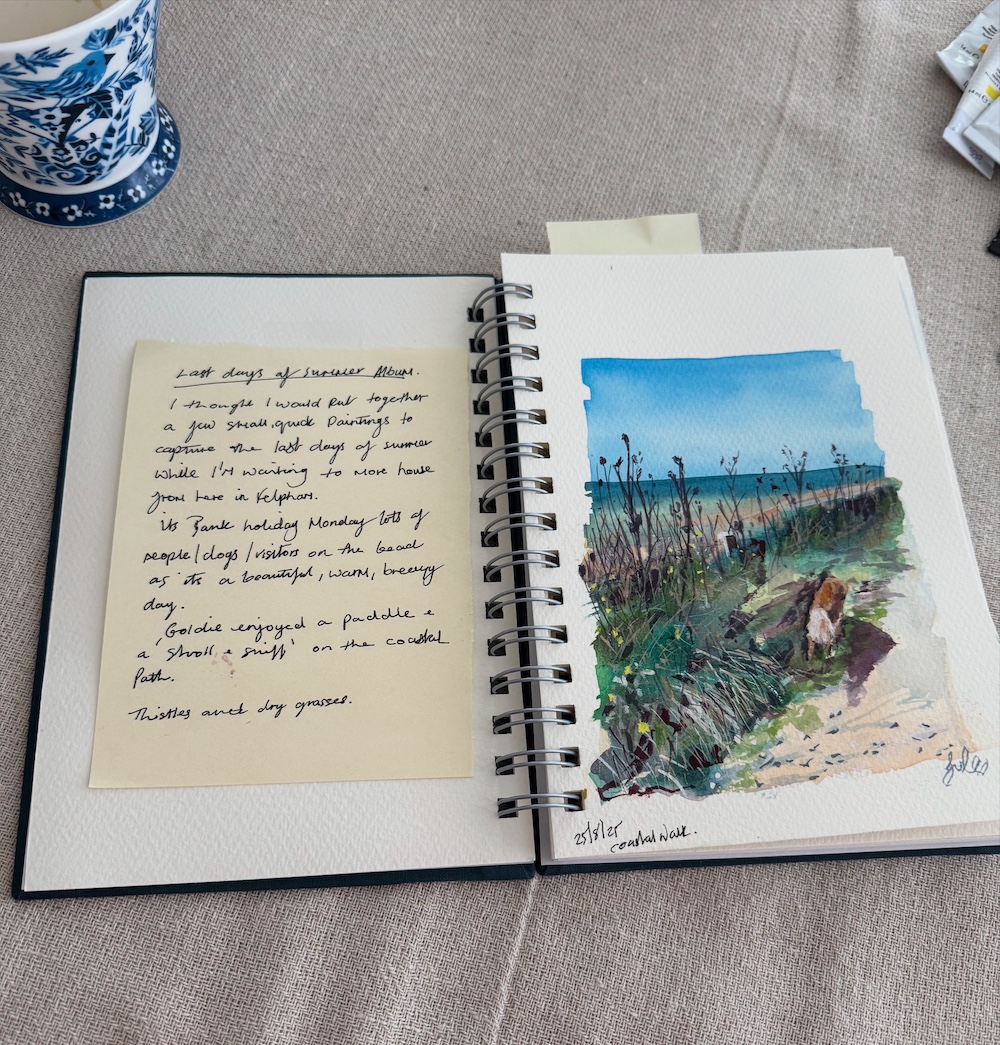 Last days of Summer Album.
I thought I would put together
a few small, quick Paintings to
capture the last days of summer
while I'm waiting to move house
from here in Felpham.
its Bank holiday Monday lots of
people/dogs/visitors on the bead
as its a beautiful, warm, breezy
day.
Goldie enjoyed a paddle &
a 'stroll & sniff' on the coastal
Path.
Thistles and dry grasses.
25/8/25
coastal walk.